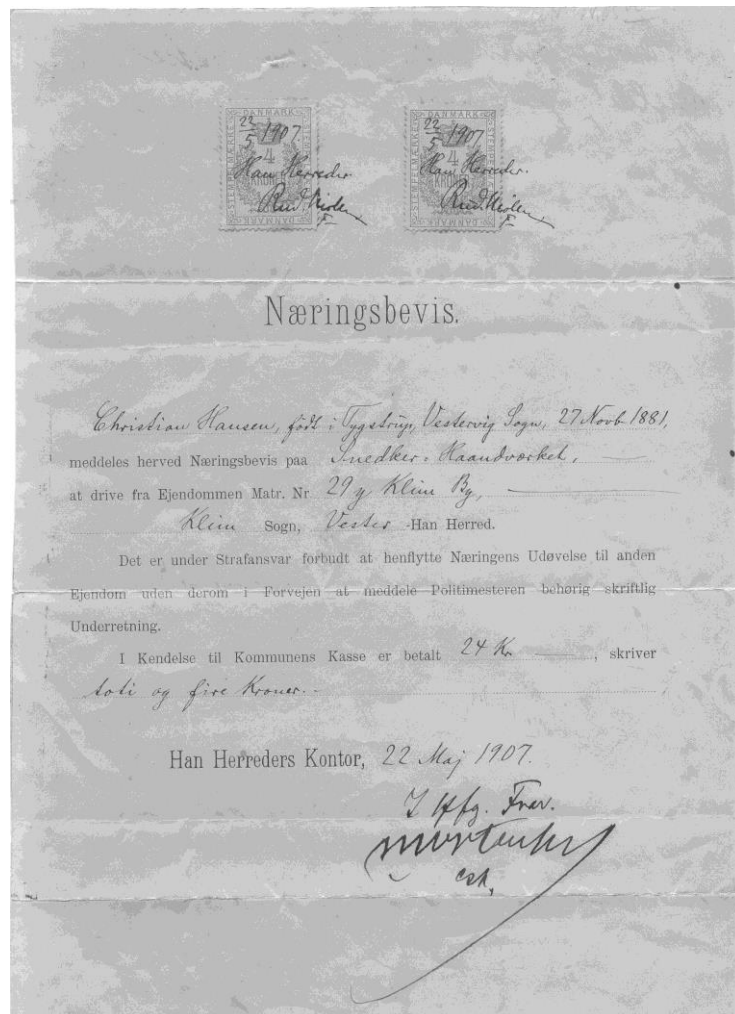 DANMARK
STEMPELMÆRKE
22/5 1907.
4
KRONER
Han Herreder.
DANMARK
DANMARK
STEMPELMÆRKE
22/5 1907.
4
KRONER
Han Herreder.
DANMARK
Næringsbevis.
Christian Hansen, født i Tygstrup, Vestervig Sogn, 27 Novb. 1881,
meddeles herved Næringsbevis paa Snedker-Haandværket,
at drive fra Ejendommen Matr. Nr 29 y Klim By,
Klim Sogn, Vester -Han Herred.
Det er under Strafansvar forbudt at henflytte Næringens Udøvelse til anden
Ejendom uden derom i Forvejen at meddele Politimesteren behørig skriftlig
Underretning.
I Kendelse til Kommunens Kasse er betalt 24 Kr. , skriver
toti og fire Kroner.
Han Herreders Kontor, 22 Maj 1907.
I Hfg. Frav.
Mortensen
cst.